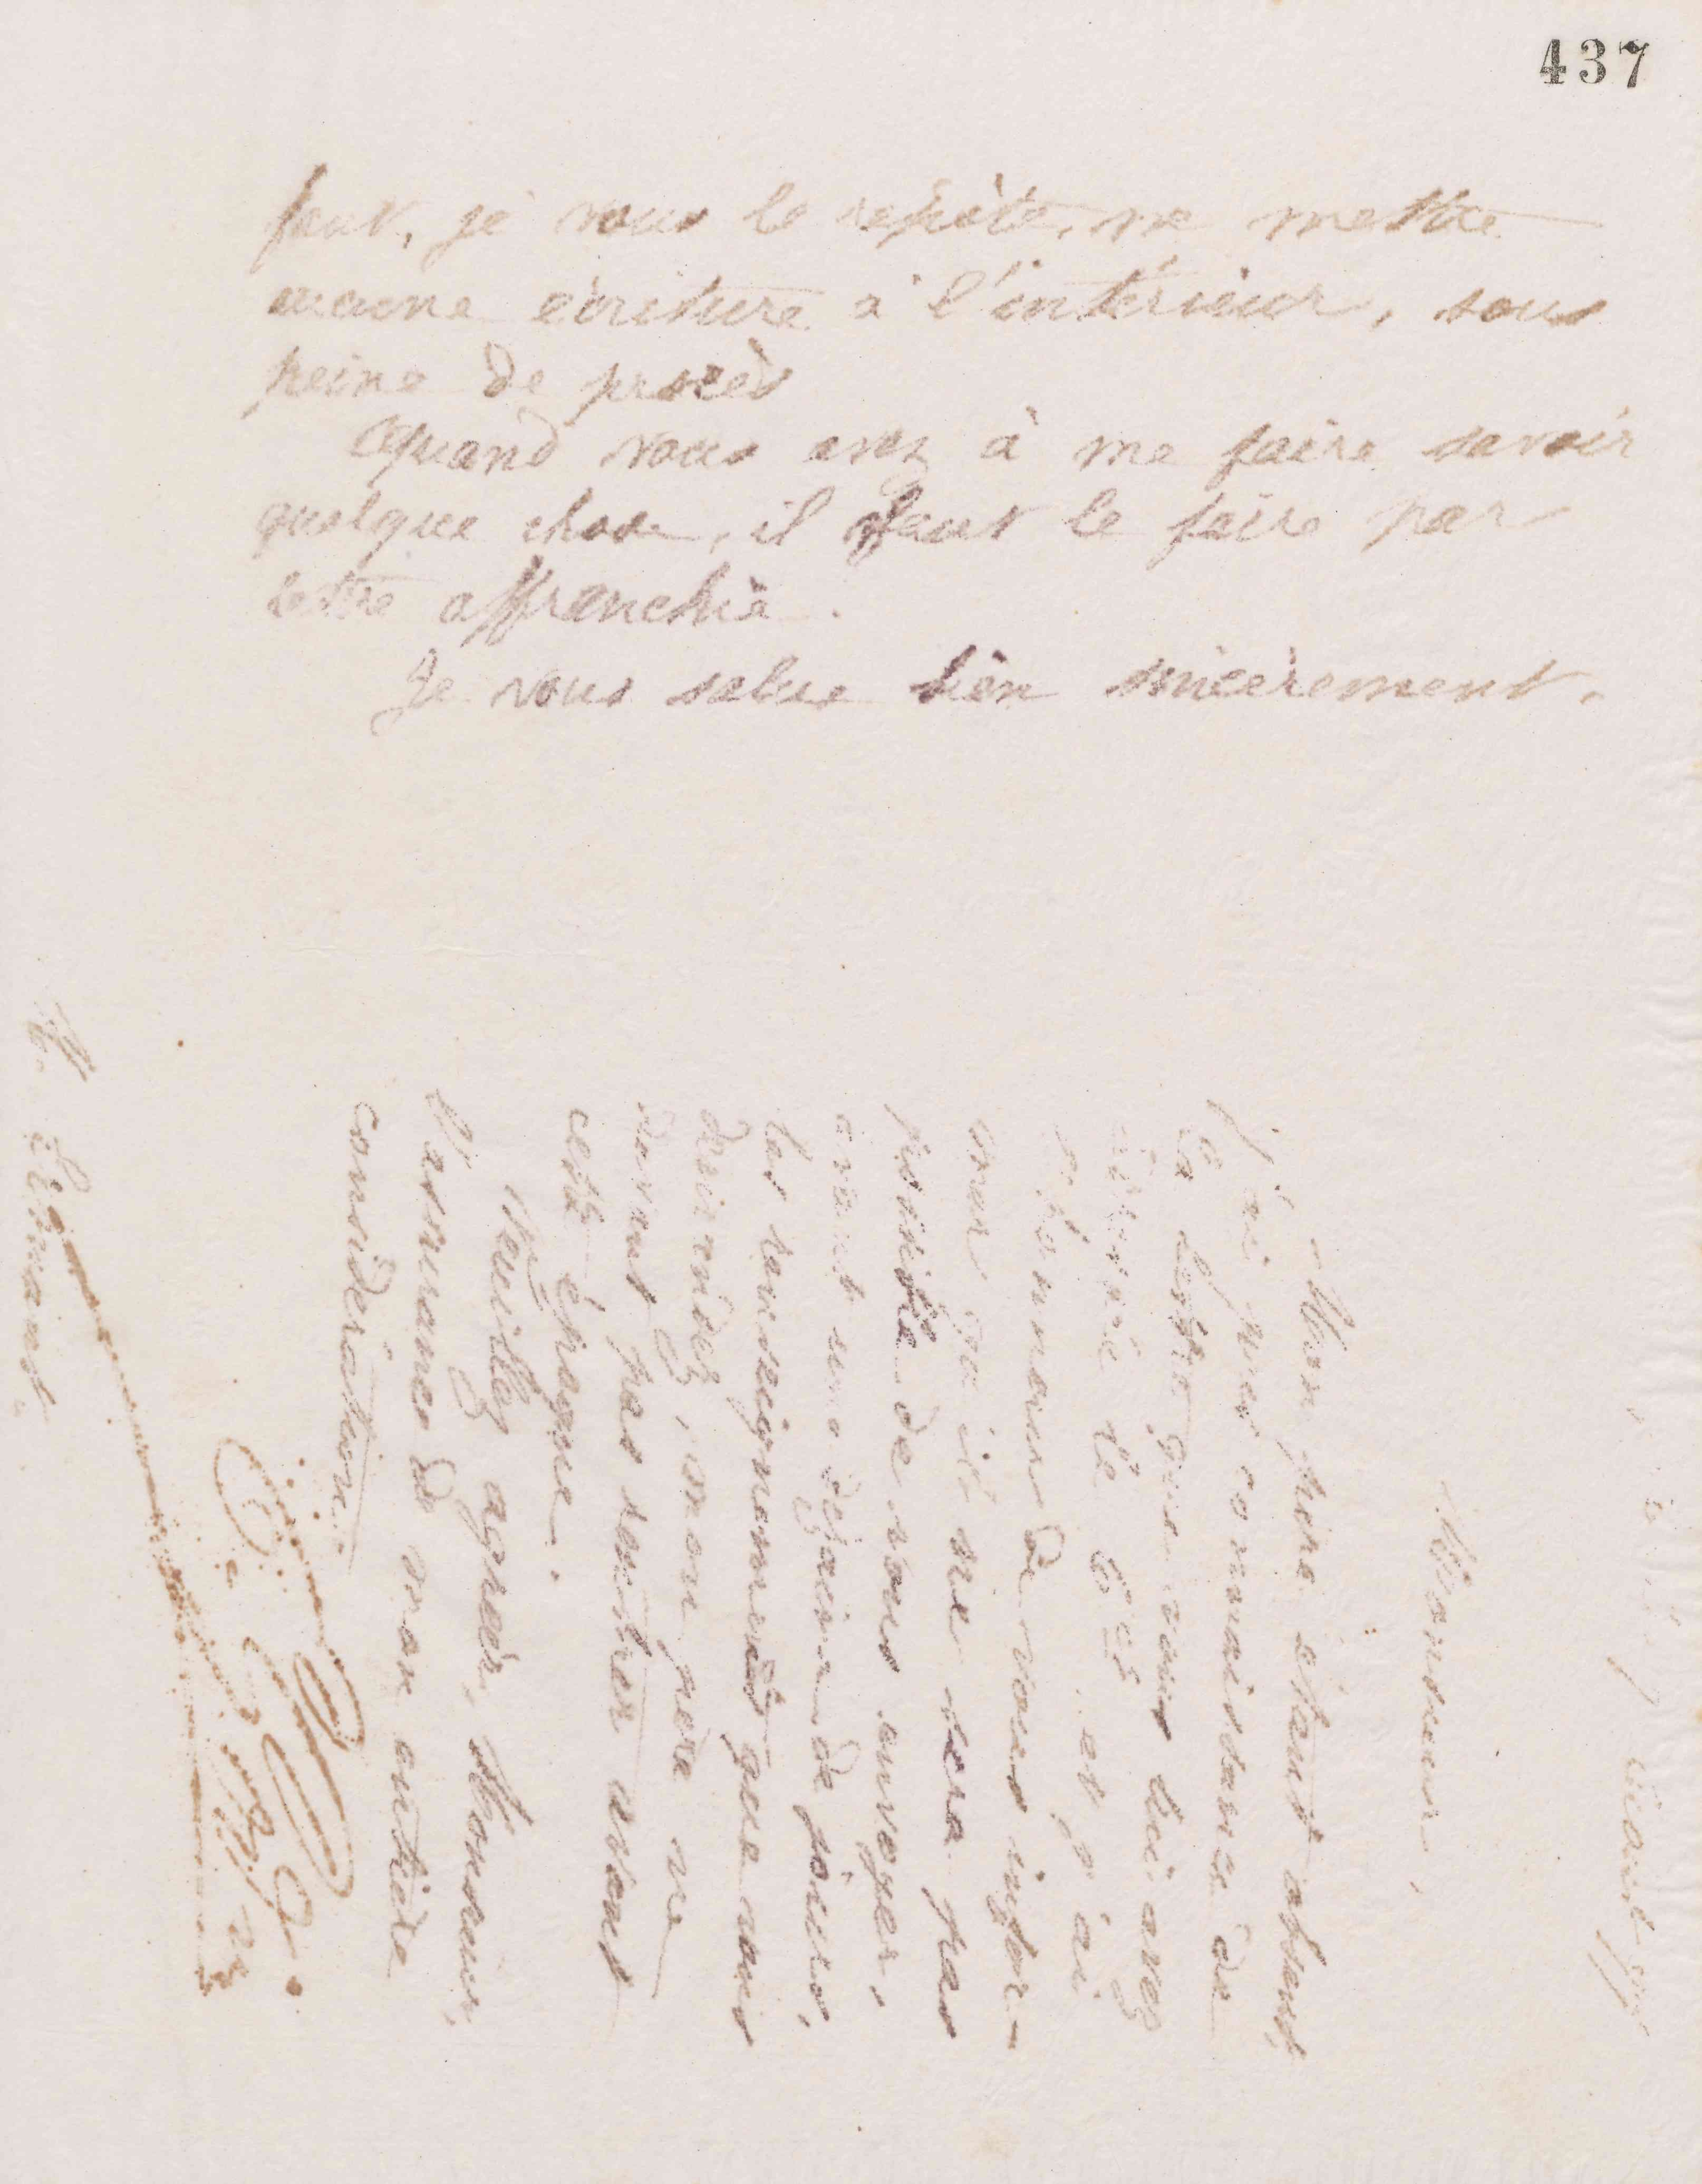 437
faut, je vous le répète, ne mettre
aucune écriture à l'intérieur, sous
peine de procès
Quand vous avez à me faire savoir
quelque chose, il faut le faire par
lettre affranchie.
Je vous salue bien sincèrement.
Monsieur,
Mon père étant absent
j'ai pris connaissance de
la lettre que vous lui avez
le 6 et, et j'ai
l'honneur de vous infor-
mer qu'il ne sera pas
possible de vous envoyer,
avant une dizaine de jours,
les renseignements que vous
demandez, mon père ne
devant pas rentrer avant
cette époque.
Veuillez agréer, Monsieur,
l'assurance de mon entière
considération.
M.